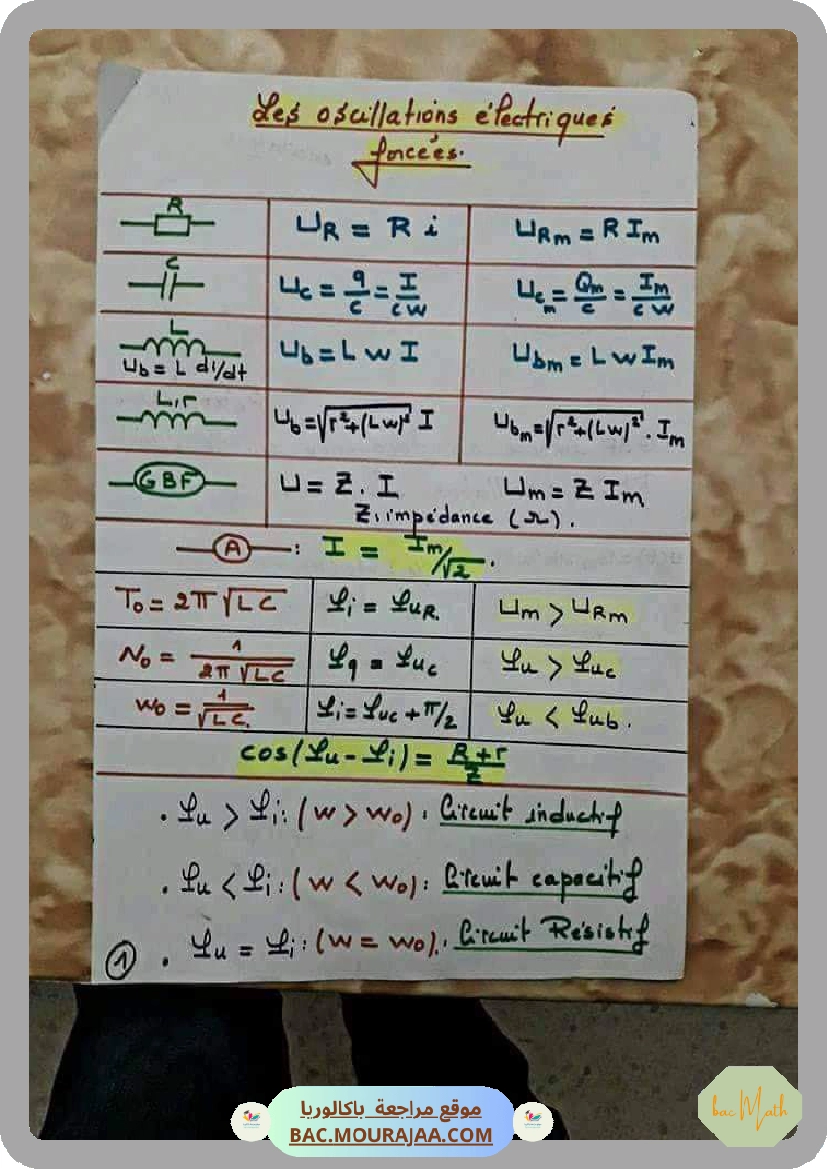 Les oscillations électriques
forcées.
R
U_R = R i
U_Rm = R I_m
C
U_c = q/c = I/cw
U_cm = Q_m/c = I_m/cw
L
U_b = L di/dt
U_b = L w I
U_bm = L w I_m
L, r
U_b = √(r² + (Lw)²) I
U_bm = √(r² + (Lw)²) . I_m
GBF
U = Z . I
U_m = Z I_m
Z : impédance (Ω).
A : I = I_m/√2 .
T₀ = 2π √LC
φ_i = φ_uR
U_m > U_Rm
N₀ = 1/(2π √LC)
φ_q = φ_uc
φ_u > φ_uc
w₀ = 1/√LC
φ_i = φ_uc + π/2
φ_u < φ_ub .
cos(φ_u - φ_i) = (R + r)/Z
. φ_u > φ_i : (w > w₀) : Circuit inductif
. φ_u < φ_i : (w < w₀) : Circuit capacitif
. φ_u = φ_i : (w = w₀) : Circuit Résistif
1
موقع مراجعة باكالوريا
BAC.MOURAJAA.COM
bac Math